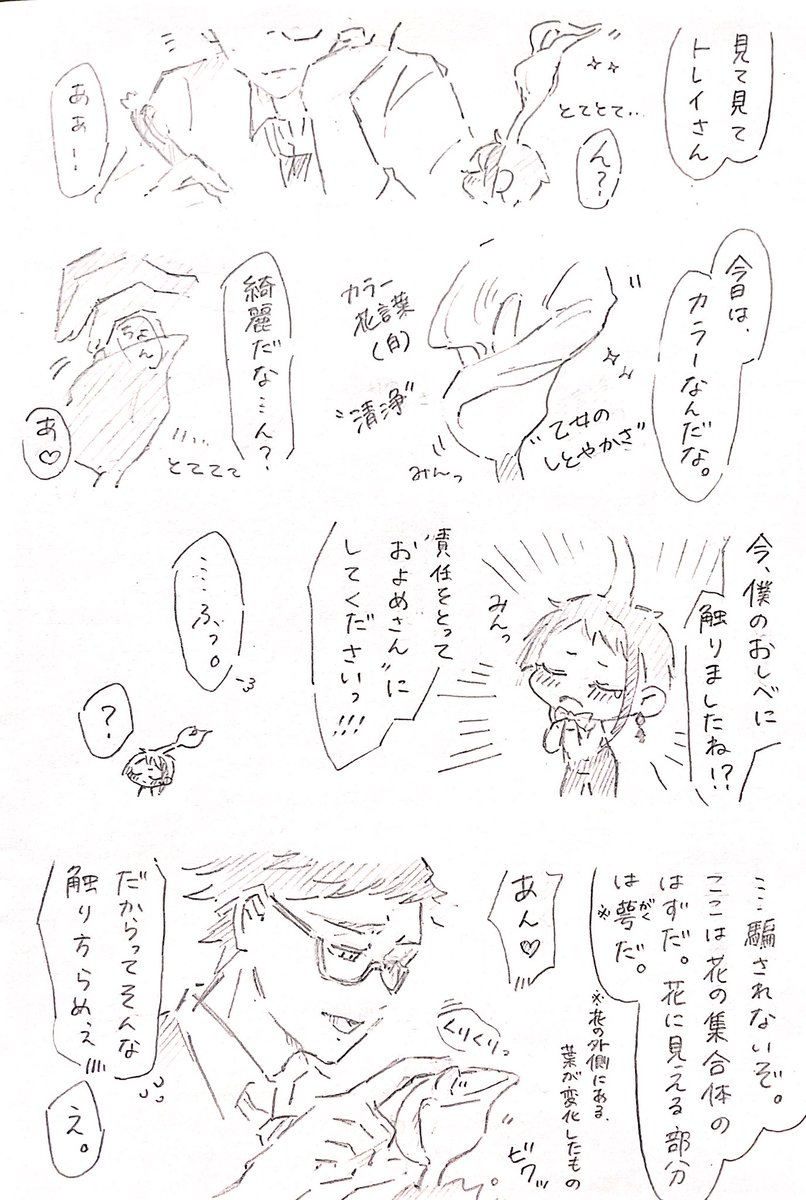 見て見て
トレイさん
とてとて…
ん?
あぁ!
今日は、
カラーなんだな。
"乙女の
しとやかさ"
みんっ
カラー
花言葉
(白)
"清浄"
綺麗だな…ん?
ちょん
とててて
あ♡
今、僕のおしべに
触りましたね!?
みんっ
責任をとって
"およめさん"に
してくださいっ!!!
……ふっ。
?
…騙されないぞ。
ここは花の集合体の
はずだ。花に見える部分
は萼だ。
がく
※
※花の外側にある、
葉が変化したもの
あん♡
くりくりっ
ビクッ
だからってそんな
触り方らめぇ
え。